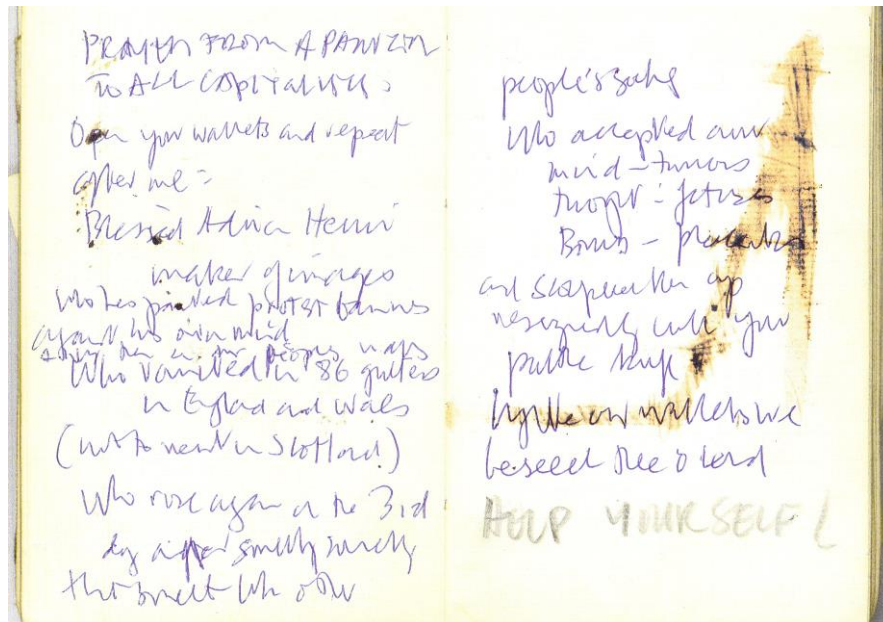 PRAYER FROM A PAINTER
TO ALL CAPITALISTS:
Open your wallets and repeat
after me =
Blessed Adrian Henri
maker of images
who has painted protest banners
against his own mind
people's
Who vomited in 86 gutters
in England and Wales
(not to in Scotland)
Who rose again on the 3rd
day after smelly
that smelt like other
people's
Who accepted our
mind - tumors
thought - fetuses
Bomb - placentas
and them up
with your
palette knife
our wallets we
beseech thee o Lord
HELP YOURSELF!